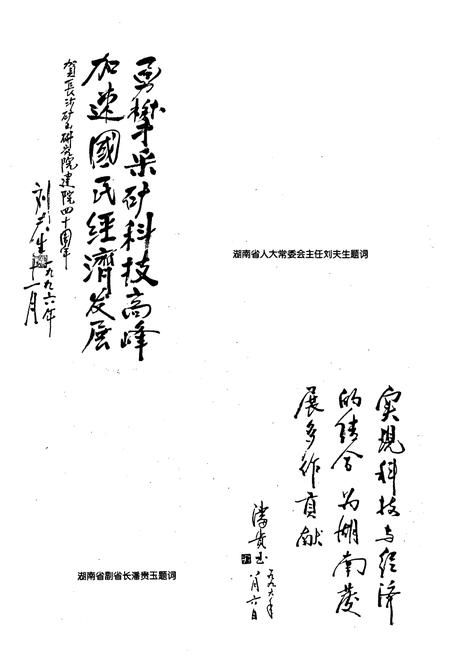 勇攀采矿科技高峰
加速國民經濟发展
贺長沙矿山研究院建院四十周年
刘夫生
一九九六年
十一月
湖南省人大常委会主任刘夫生题词
实现科技与经济
的结合为湖南发
展多作贡献
潘贵玉
一九九六年
八月六日
湖南省副省长潘贵玉题词